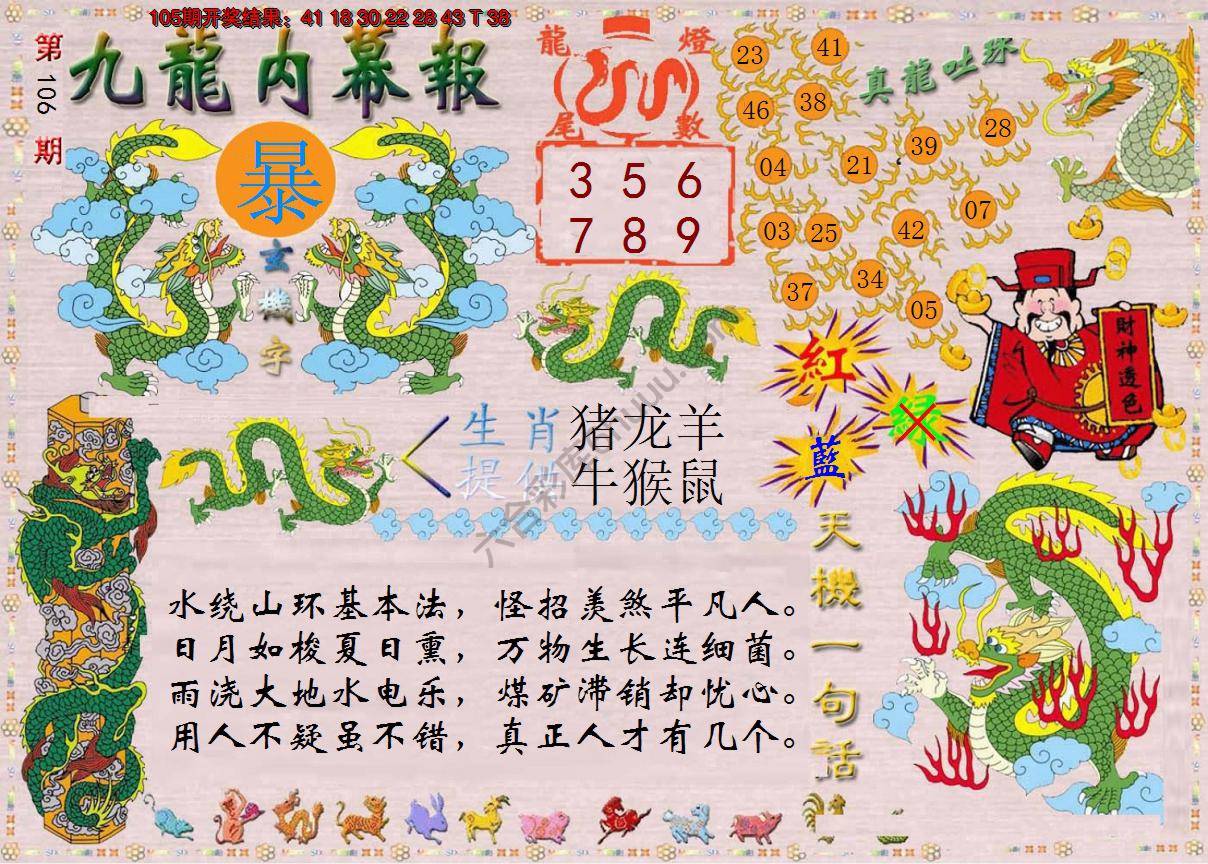 105期开奖结果：41 18 30 22 28 43 T 38
第106期
九龍内幕報
暴
玄機字
龍燈
尾數
3 5 6
7 8 9
真龍吐珠
23 41
46 38
04 21 39 28
03 25 42 07
37 34 05
財神透色
紅
绿
藍
生肖 猪龙羊
提供 牛猴鼠
六合彩库
天機一句話
水绕山环基本法，怪招羡煞平凡人。
日月如梭夏日熏，万物生长连细菌。
雨浇大地水电乐，煤矿滞销却忧心。
用人不疑虽不错，真正人才有几个。